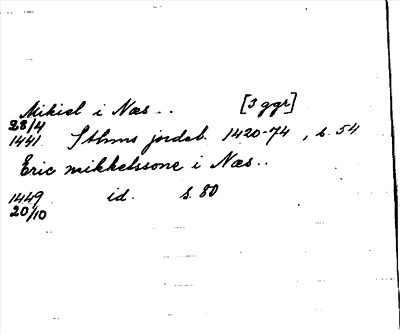 Mikiel i Næs.. [3 ggr]
28/4
1441. Sthms jordeb. 1420-74, s. 54
Eric mikkelssone i Næs..
1449 id. s. 80
20/10